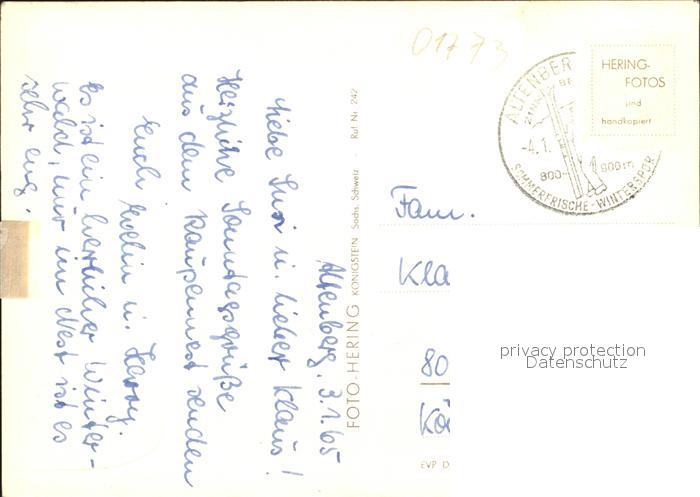 01773
Altenberg. 3.1.65
Liebe Susi u. lieber Klaus!
Herzliche Sonntagsgrüße
aus dem Raupennest senden
Euch Evelin u. Harry.
Es ist ein herrlicher Winter-
wald, nur im Nest ist es
sehr eng.
FOTO-HERING KÖNIGSTEIN Sächs. Schweiz · Ruf Nr. 242
ALTENBER
-4.1.
800-
900m
SOMMERFRISCHE-WINTERSPOR
HERING-
FOTOS
und
handkopiert
Fam.
Kla
80
EVP D
privacy protection
Datenschutz